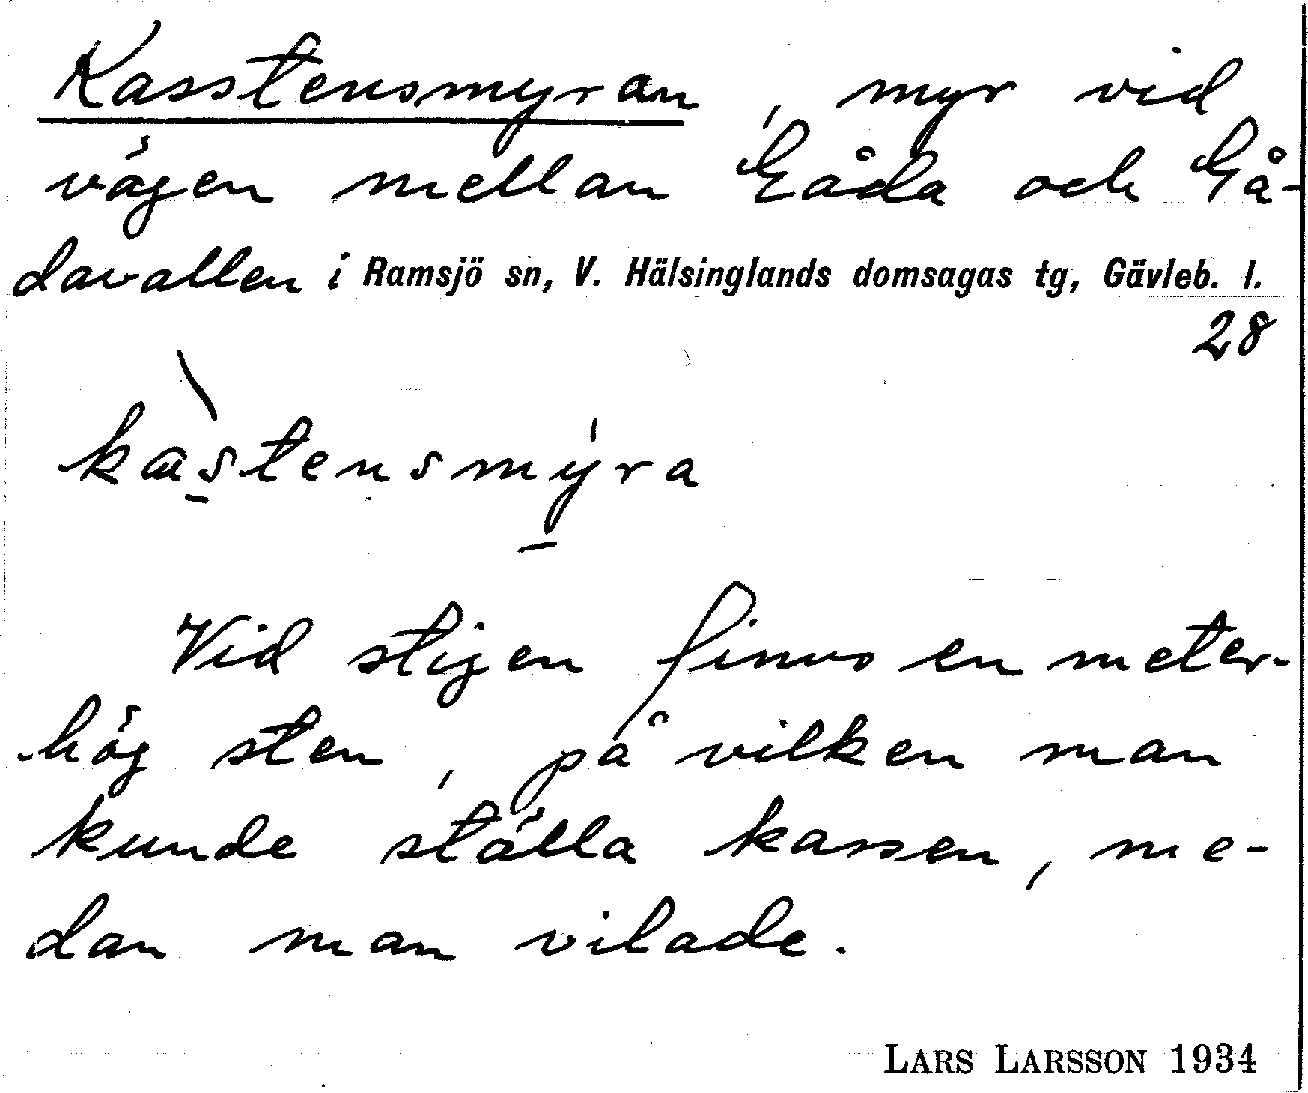 Kasstensmyran, myr vid
vägen mellan Gåda och Gå-
davallen i Ramsjö sn, V. Hälsinglands domsagas tg, Gävleb. l.
28
kastensmyra
Vid stigen finns en meter-
hög sten, på vilken man
kunde ställa kassen, me-
dan man vilade.
LARS LARSSON 1934